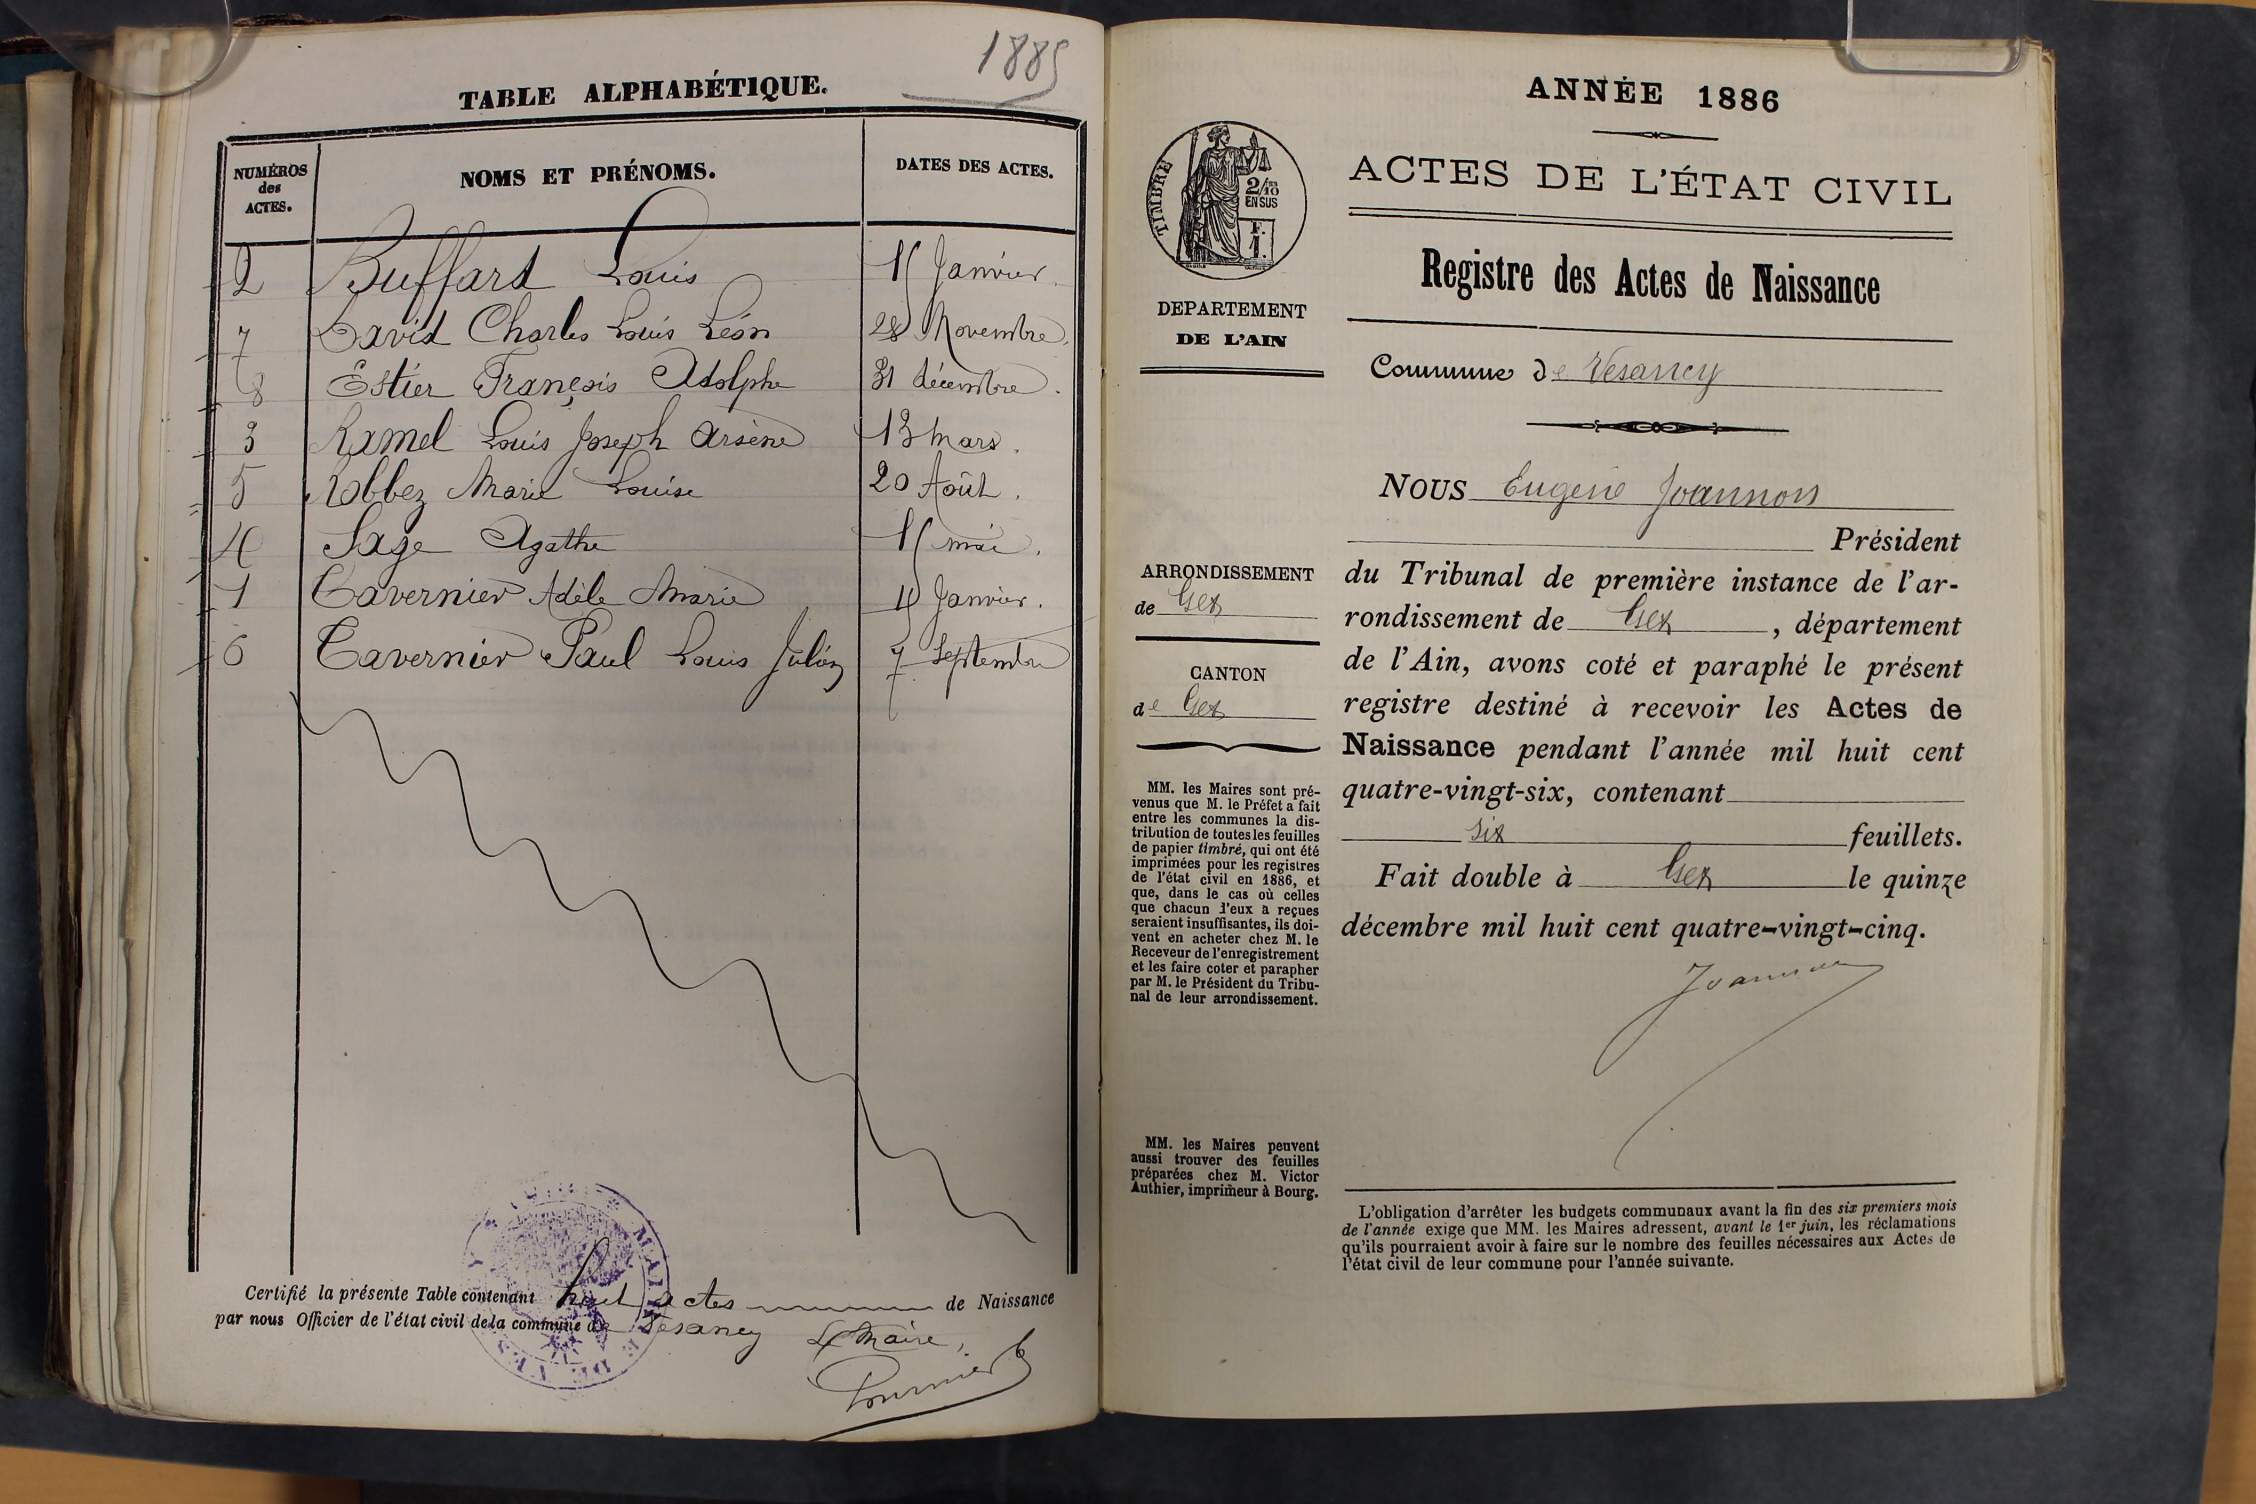 1885
TABLE ALPHABÉTIQUE.
NUMÉROS des ACTES. NOMS ET PRÉNOMS. DATES DES ACTES.
2 Buffard Louis 15 Janvier.
7 David Charles Louis Léon 28 Novembre.
8 Estier François Adolphe 31 décembre.
3 Ramel Louis Joseph Arsène 13 mars.
5 Robbez Marie Louise 20 Août.
4 Sage Agathe 15 mai.
1 Tavernier Adèle Marie Janvier.
6 Tavernier Paul Louis Julien 7 Septembre
Certifié la présente Table contenant huit actes de Naissance
par nous Officier de l'état civil de la commune de Vesancy Le Maire,
MAIRIE DE VES
ANNÉE 1886
ACTES DE L'ÉTAT CIVIL
Registre des Actes de Naissance
Commune de Vesancy
TIMBRE
2/10 EN SUS
F. 1.
DEPARTEMENT
DE L'AIN
ARRONDISSEMENT
de Gex
CANTON
de Gex
MM. les Maires sont pré-
venus que M. le Préfet a fait
entre les communes la dis-
tribution de toutes les feuilles
de papier timbré, qui ont été
imprimées pour les registres
de l'état civil en 1886, et
que, dans le cas où celles
que chacun d'eux a reçues
seraient insuffisantes, ils doi-
vent en acheter chez M. le
Receveur de l'enregistrement
et les faire coter et parapher
par M. le Président du Tribu-
nal de leur arrondissement.
MM. les Maires peuvent
aussi trouver des feuilles
préparées chez M. Victor
Authier, imprimeur à Bourg.
NOUS Eugène Joannon
Président
du Tribunal de première instance de l'ar-
rondissement de Gex, département
de l'Ain, avons coté et paraphé le présent
registre destiné à recevoir les Actes de
Naissance pendant l'année mil huit cent
quatre-vingt-six, contenant
six feuillets.
Fait double à Gex le quinze
décembre mil huit cent quatre-vingt-cinq.
Joannon
L'obligation d'arrêter les budgets communaux avant la fin des six premiers mois
de l'année exige que MM. les Maires adressent, avant le 1er juin, les réclamations
qu'ils pourraient avoir à faire sur le nombre des feuilles nécessaires aux Actes de
l'état civil de leur commune pour l'année suivante.